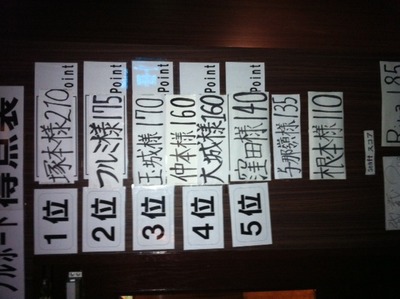 得点表
1位 塚本様 210 Point
2位 フルミ様 175 Point
3位 玉城様 170 Point
4位 仲本様 160
大城様 160 Point
5位 窪田様 140 Point
与那嶺様 135
根本様 110
Staff スコア
185